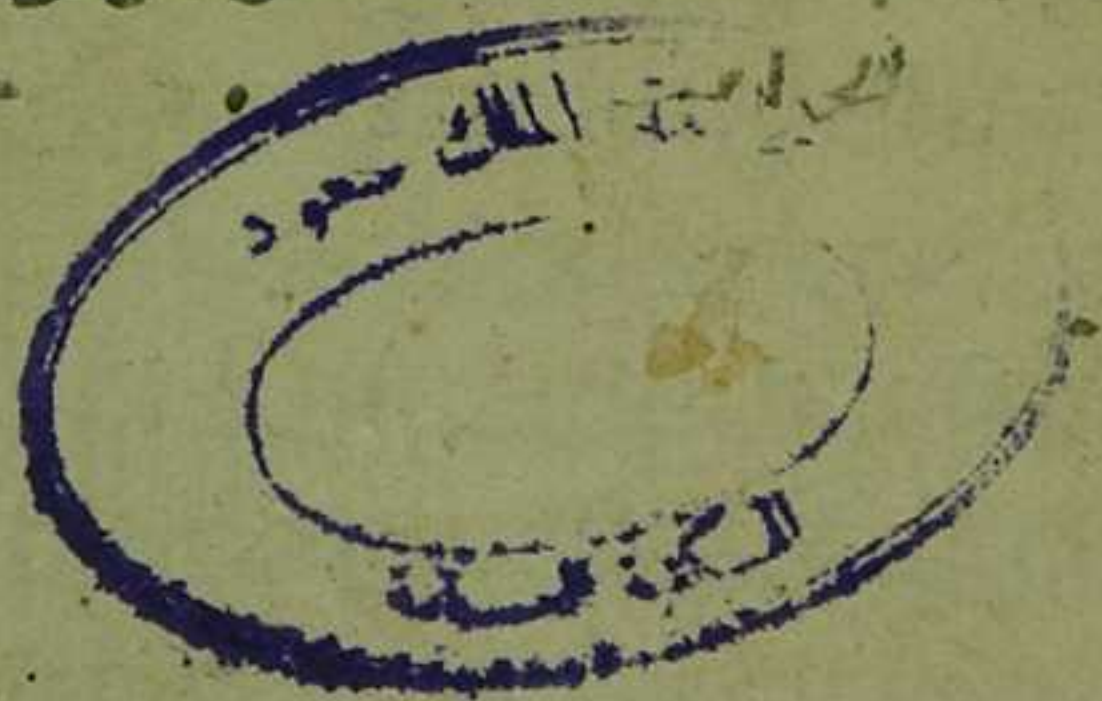 جامعة الملك سعود
المكتبة